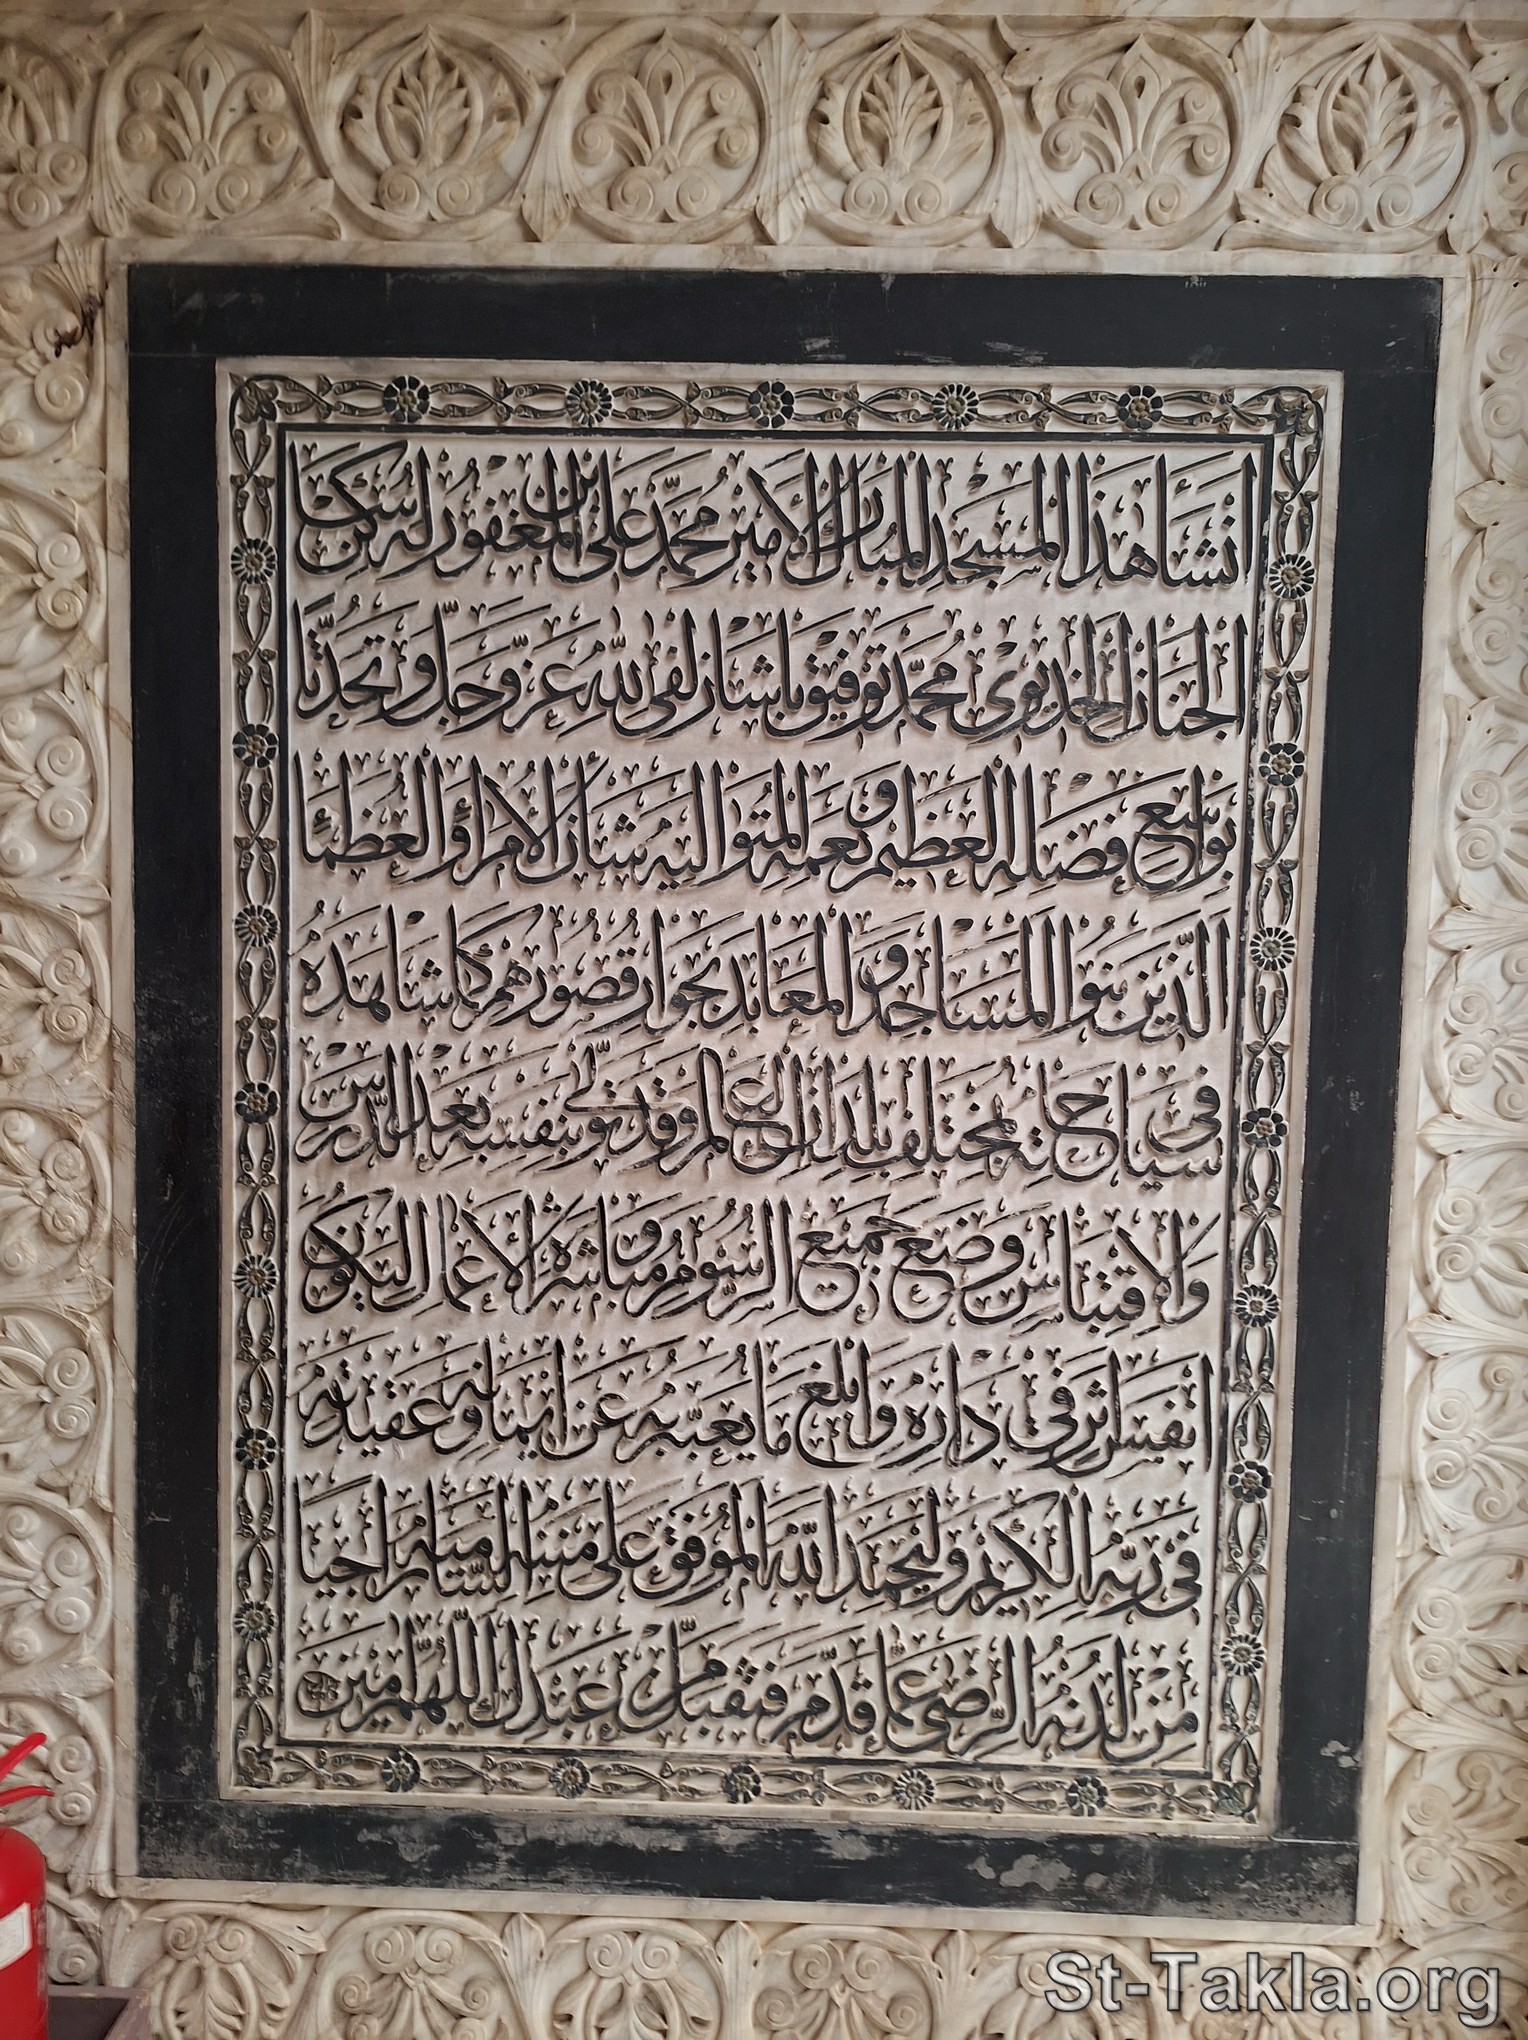 انشأ هذا المسجد المبارك الأمير محمد على ابن المغفور له ساكن
الجنان الخديوى محمد توفيق باشا زلفى لله عز وجل وتحدثا
بواسع فضله العظيم ونعمه المتواليه شأن الأمراء والعظماء
الذين بنوا المساجد والمعابد بجوار قصورهم كما شاهده
فى سياحاته بمختلف بلدان العالم وقد تولى بنفسه بعد الدرس
والاقتباس وضع جميع الرسوم ومباشرة الأعمال ليكون
انفس اثر فى داره وابلغ ما يعبر به عن ايمانه وعقيدته
فى ربه الكريم وليحمد الله الموفق على مننه السامية راجيا
من لدنه الرضى عما قدم فتقبل من عبدك اللهم امين
St-Takla.org